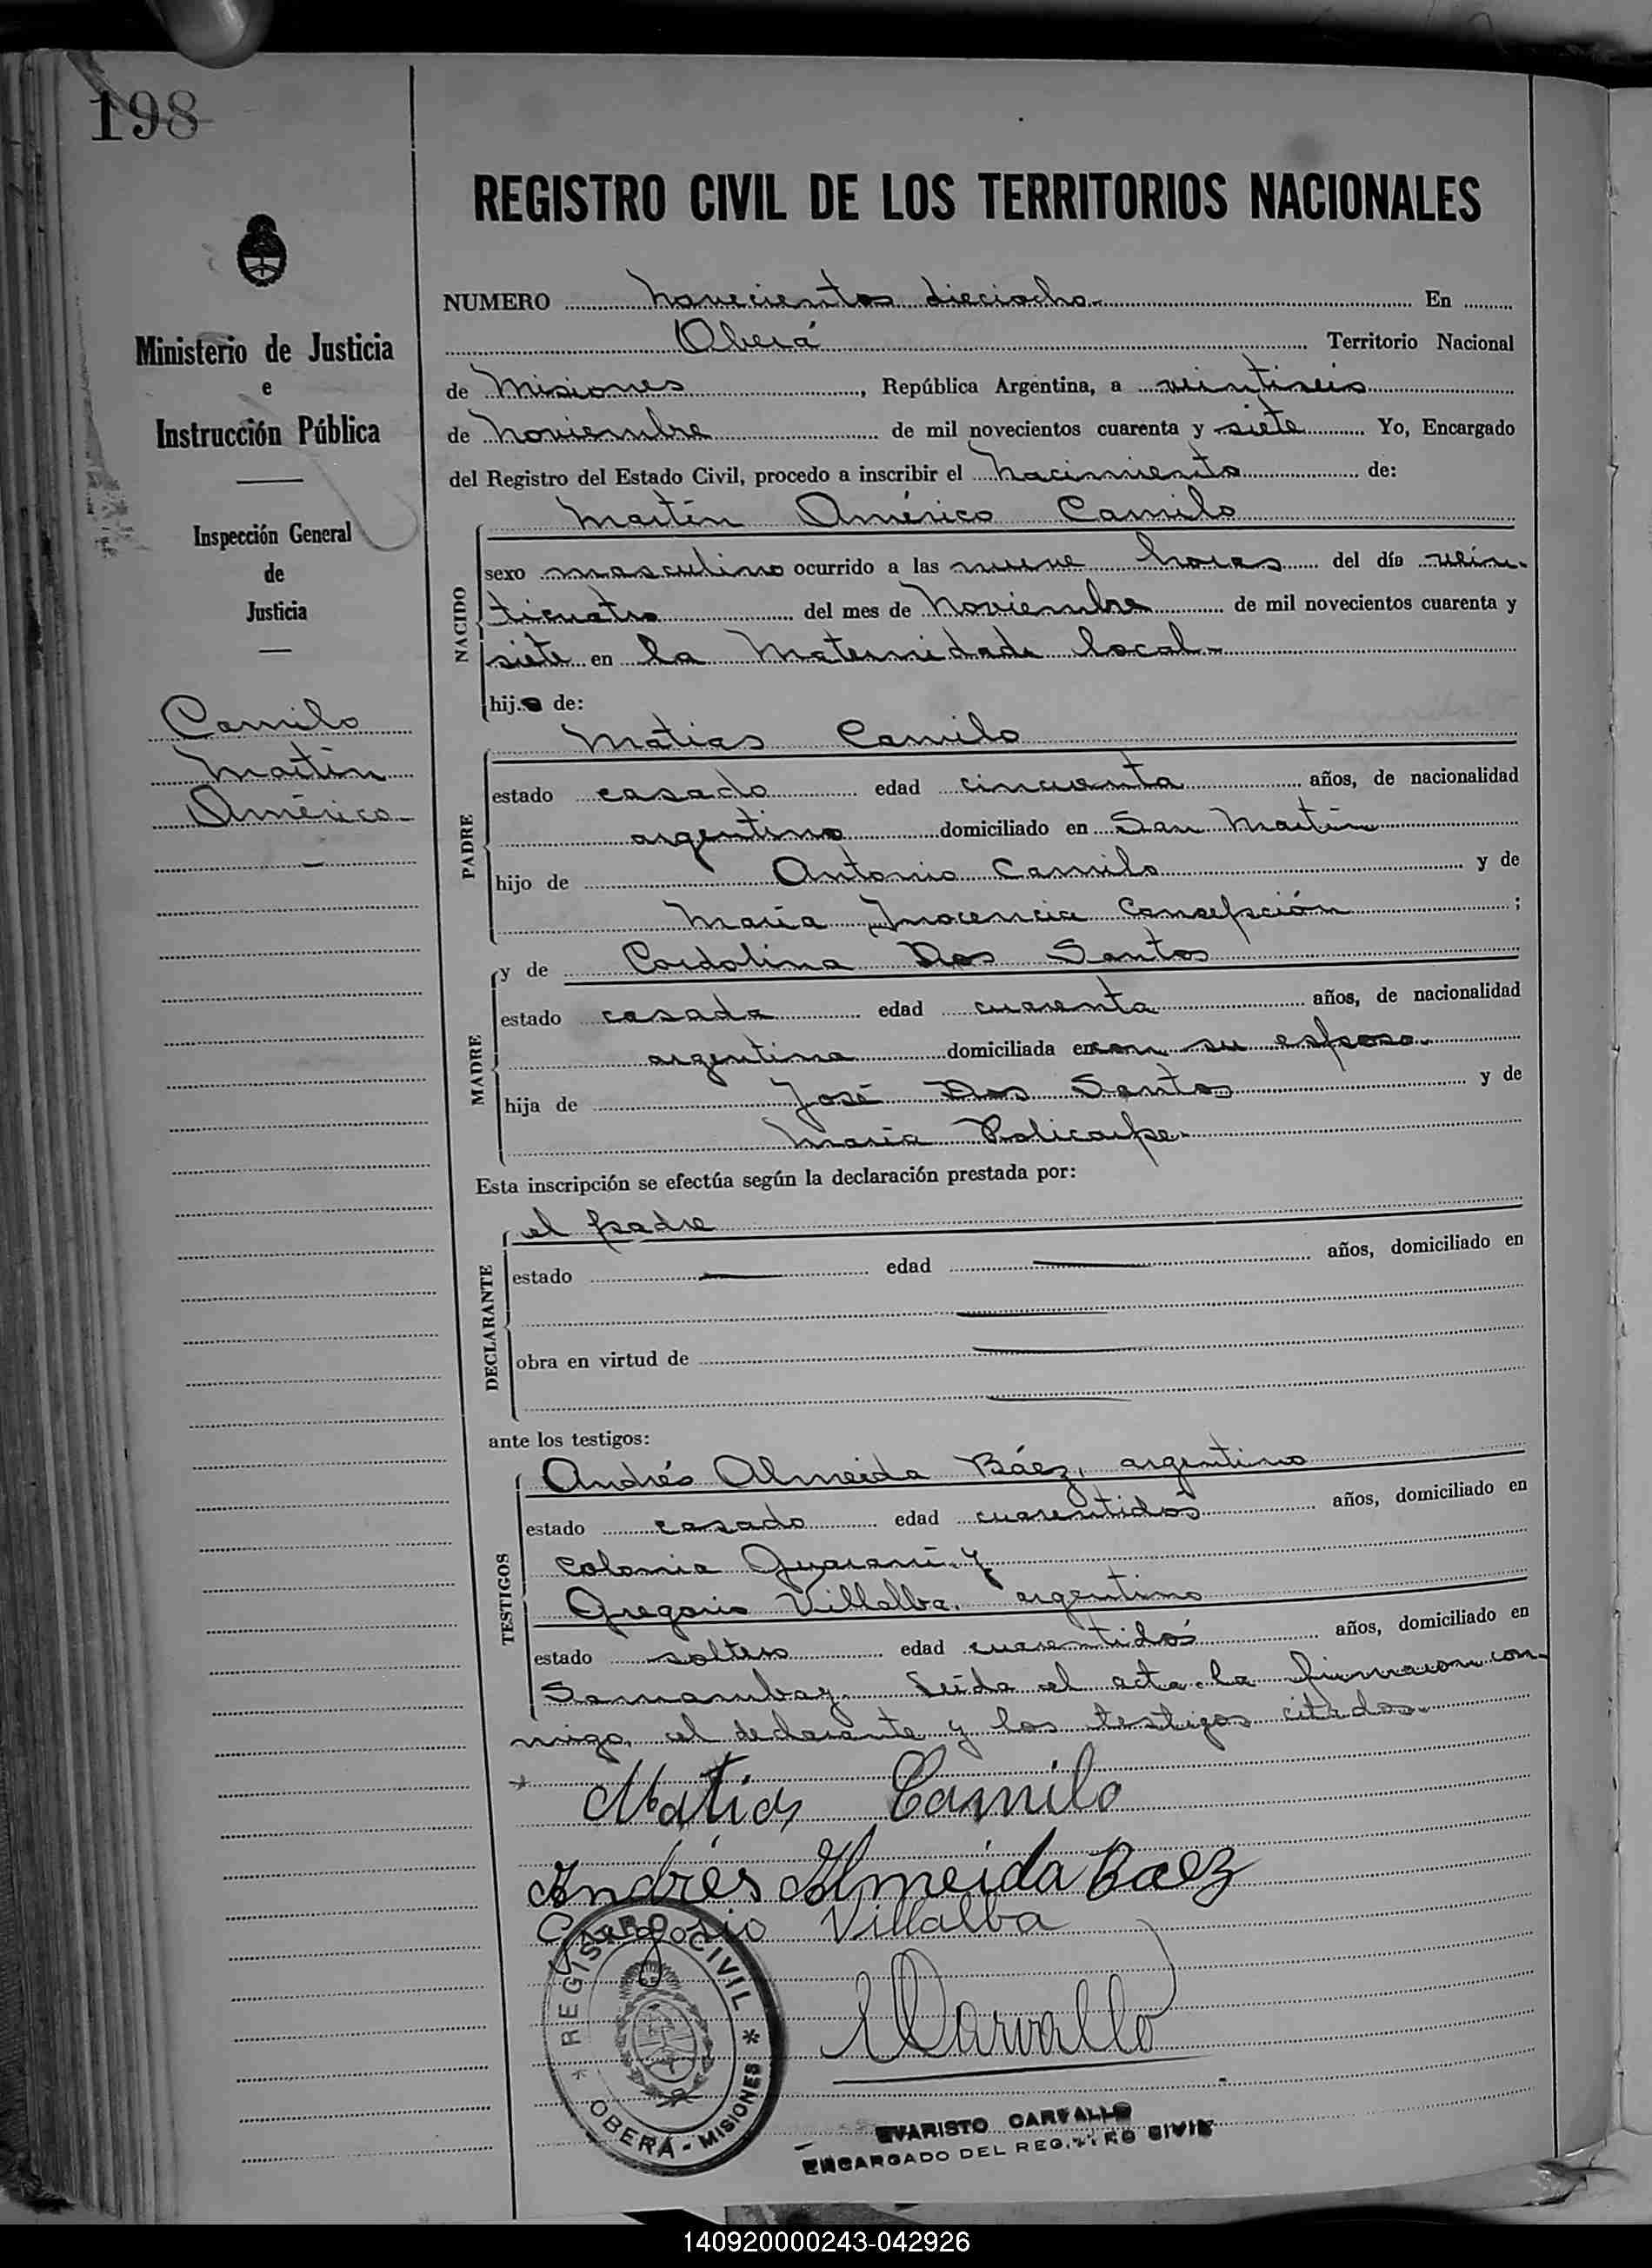 198
REGISTRO CIVIL DE LOS TERRITORIOS NACIONALES
Ministerio de Justicia
e
Instrucción Pública
Inspección General
de
Justicia
Camilo
Martín
Américo
NUMERO novecientos dieciocho En
Oberá Territorio Nacional
de Misiones, República Argentina, a veintiseis
de Noviembre de mil novecientos cuarenta y siete Yo, Encargado
del Registro del Estado Civil, procedo a inscribir el Nacimiento de:
Martín Américo Camilo
NACIDO
sexo masculino ocurrido a las nueve horas del día vein-
ticuatro del mes de Noviembre de mil novecientos cuarenta y
siete en la Maternidade local
hijo de:
Matias Camilo
PADRE
estado casado edad cincuenta años, de nacionalidad
argentino domiciliado en San Martín
hijo de Antonio Camilo y de
María Inocencia Consepción;
y de Cardolina Dos Santos
MADRE
estado casada edad cuarenta años, de nacionalidad
argentina domiciliada en con su esposo
hija de José Dos Santos y de
María Policarpe
Esta inscripción se efectúa según la declaración prestada por:
el padre
DECLARANTE
estado edad años, domiciliado en
obra en virtud de
ante los testigos:
Andrés Almeida Báez, argentino
TESTIGOS
estado casado edad cuarentidós años, domiciliado en
Colonia Guaraní y
Gregorio Villalba, argentino
estado soltero edad cuarentidós años, domiciliado en
Samambay. Leída el acta la firmaron con-
migo, el declarante y los testigos citados.
Matias Camilo
Andrés Almeida Baez
Gregorio Villalba
ECarvallo
* REGISTRO CIVIL *
OBERÁ - MISIONES
EVARISTO CARVALLO
ENCARGADO DEL REGISTRO CIVIL
140920000243-042926